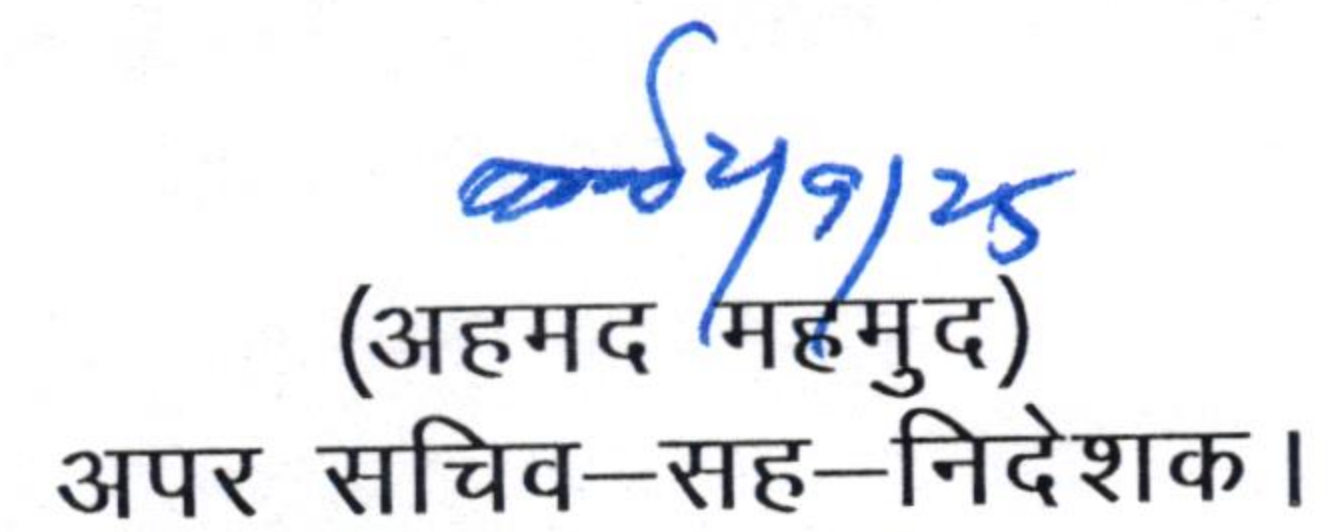 (अहमद महमुद)
अपर सचिव–सह–निदेशक।